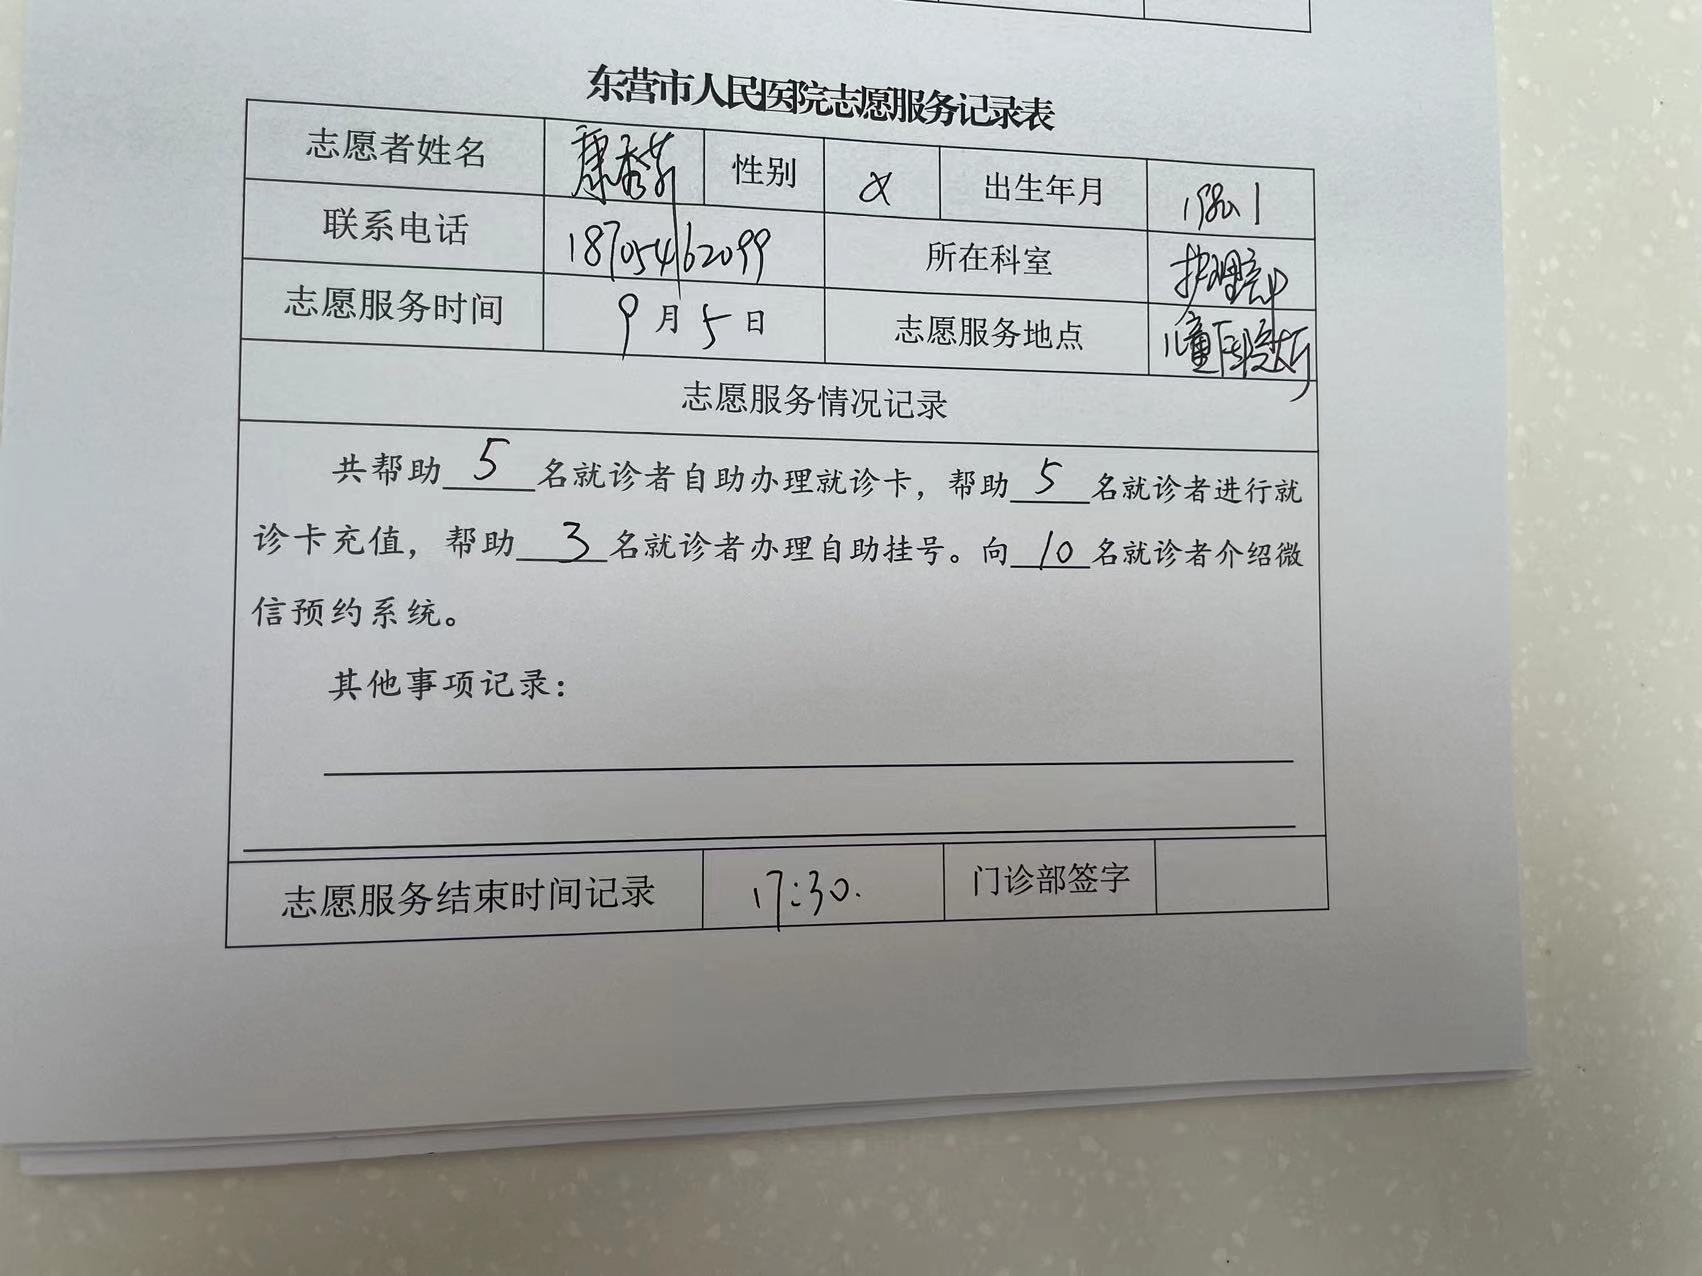 东营市人民医院志愿服务记录表
志愿者姓名 康秀芬 性别 女 出生年月
联系电话 18705462099 所在科室 护理部
志愿服务时间 9月5日 志愿服务地点 儿童医院大厅
志愿服务情况记录
共帮助 5 名就诊者自助办理就诊卡，帮助 5 名就诊者进行就
诊卡充值，帮助 3 名就诊者办理自助挂号。向 10 名就诊者介绍微
信预约系统。
其他事项记录：
志愿服务结束时间记录 17:30. 门诊部签字